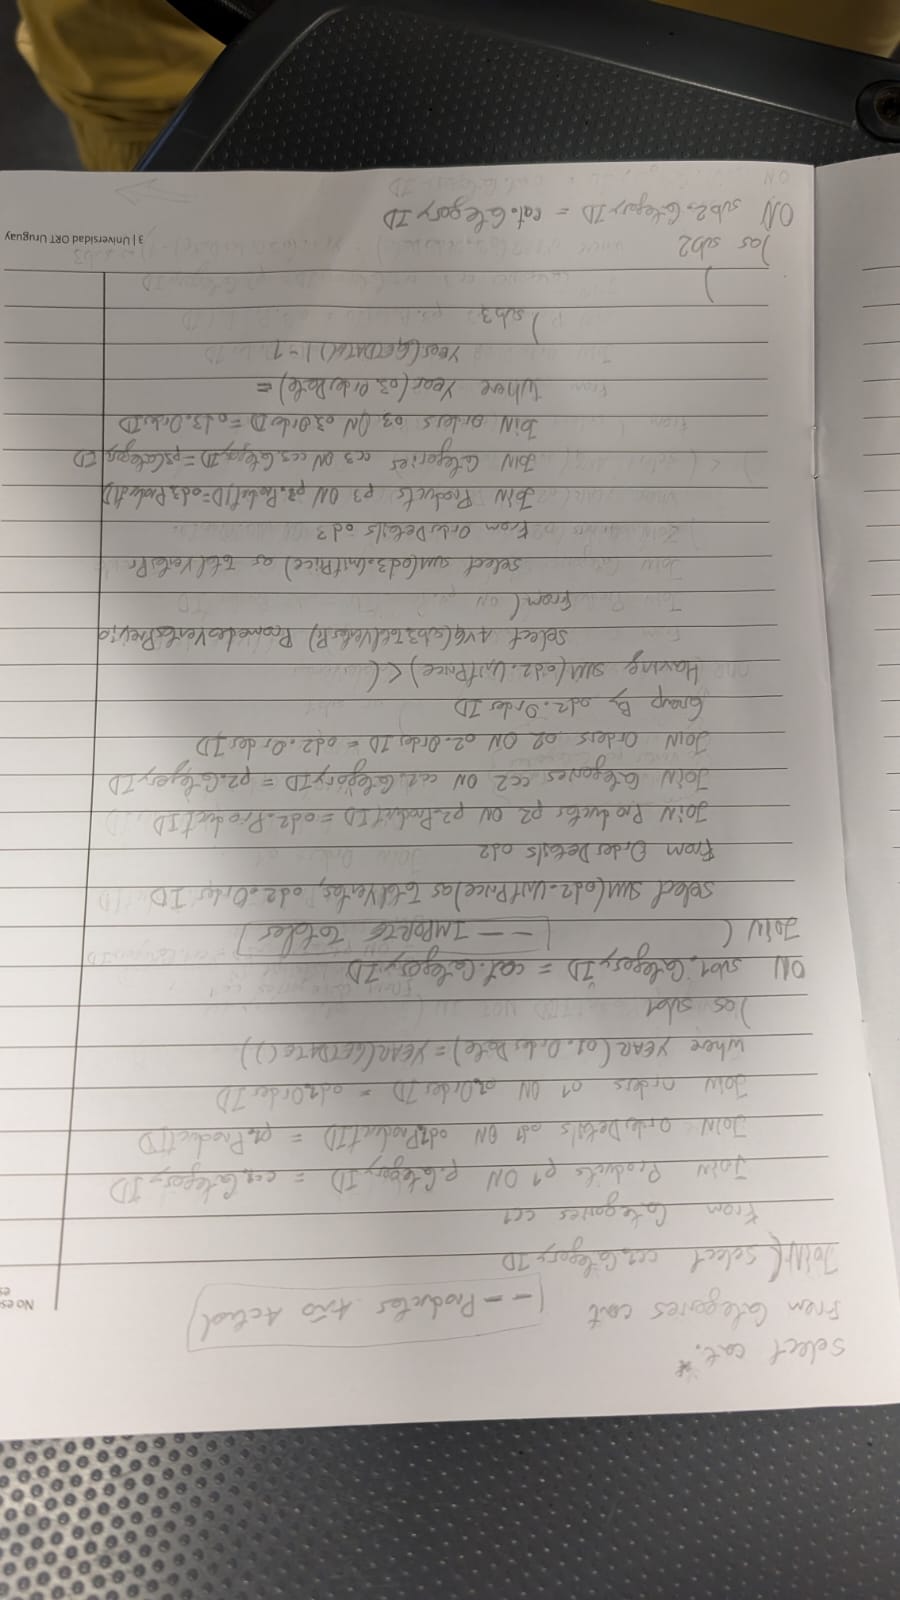 select cat.*
From Categories cat
-- Productos Año Actual
JOIN( select cc1.CategoryID
From Categories cc1
Join Products p1 ON p.CategoryID = cc1.CategoryID
JOIN OrderDetails od1 ON od1ProductID = p1.ProductID
Join orders o1 ON o1.OrderID = od1OrderID
where YEAR(o1.OrderDate) = YEAR(GETDATE())
)as sub1
ON sub1.CategoryID = cat.CategoryID
JOIN (
-- IMPORTE Totales
select sum(od2.UnitPrice) as TotalVentas, od2.OrderID
From OrderDetails od2
Join Productos p2 ON p2.ProductID = od2.ProductID
Join Categories cc2 ON cc2.CategoryID = p2.CategoryID
Join Orders o2 ON o2.OrderID = od2.OrderID
Group By od2.OrderID
Having sum(od2.UnitPrice) < (
select AVG(sub3.TotalVentasPr) PromedioVentasPrevio
From(
select sum(od3.UnitPrice) as TotalVentasPr
From OrderDetails od3
Join Products p3 ON p3.ProductID=od3.ProductID
Join Categories cc3 ON cc3.CategoryID = p3CategoryID
JOIN orders o3 ON o3.OrderID = od3.OrderID
Where Year(o3.OrderDate) =
Year(GETDATE()) - 1
) sub3
)
)as sub2
ON sub2.CategoryID = cat.CategoryID
No es
es
3 | Universidad ORT Uruguay